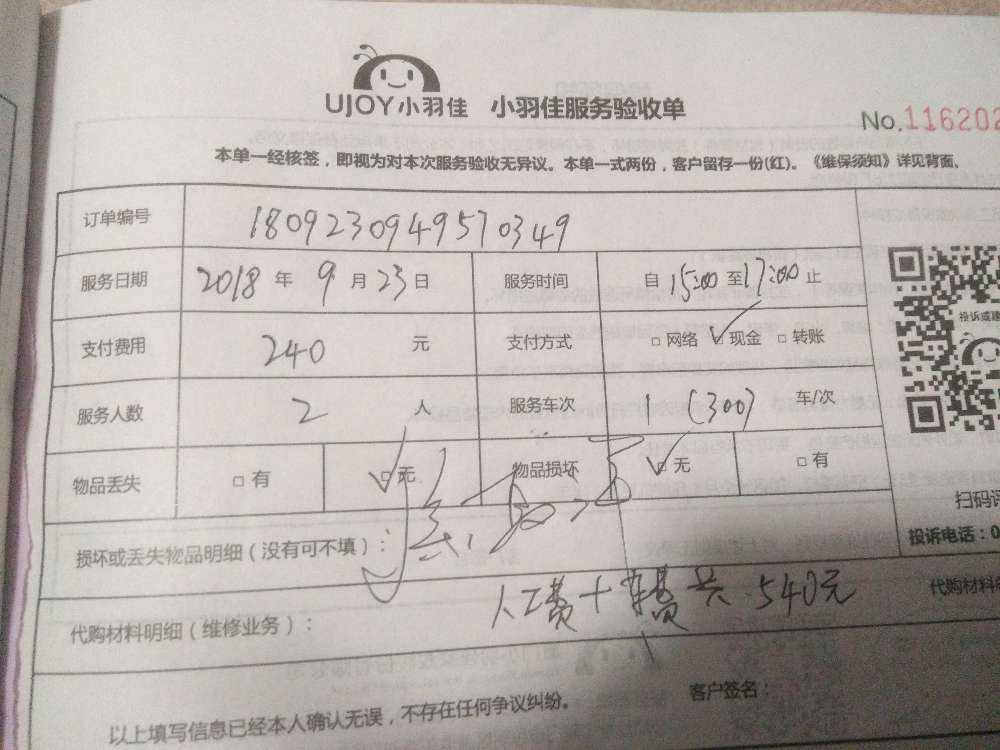 UJOY小羽佳 小羽佳服务验收单
No.116202
本单一经核签，即视为对本次服务验收无异议。本单一式两份，客户留存一份(红)。《维保须知》详见背面。
订单编号 1809230949570349
服务日期 2018 年 9 月 23 日 服务时间 自 15:00 至 17:00 止
投诉或建
支付费用 240 元 支付方式 □ 网络 ☑ 现金 □ 转账
服务人数 2 人 服务车次 1 (300) 车/次
物品丢失 □ 有 ☑ 无 物品损坏 ☑ 无 □ 有
扫码评
损坏或丢失物品明细（没有可不填）：
投诉电话：0
人工费+车费共 540元
代购材料明细（维修业务）：
代购材料
客户签名：
以上填写信息已经本人确认无误，不存在任何争议纠纷。